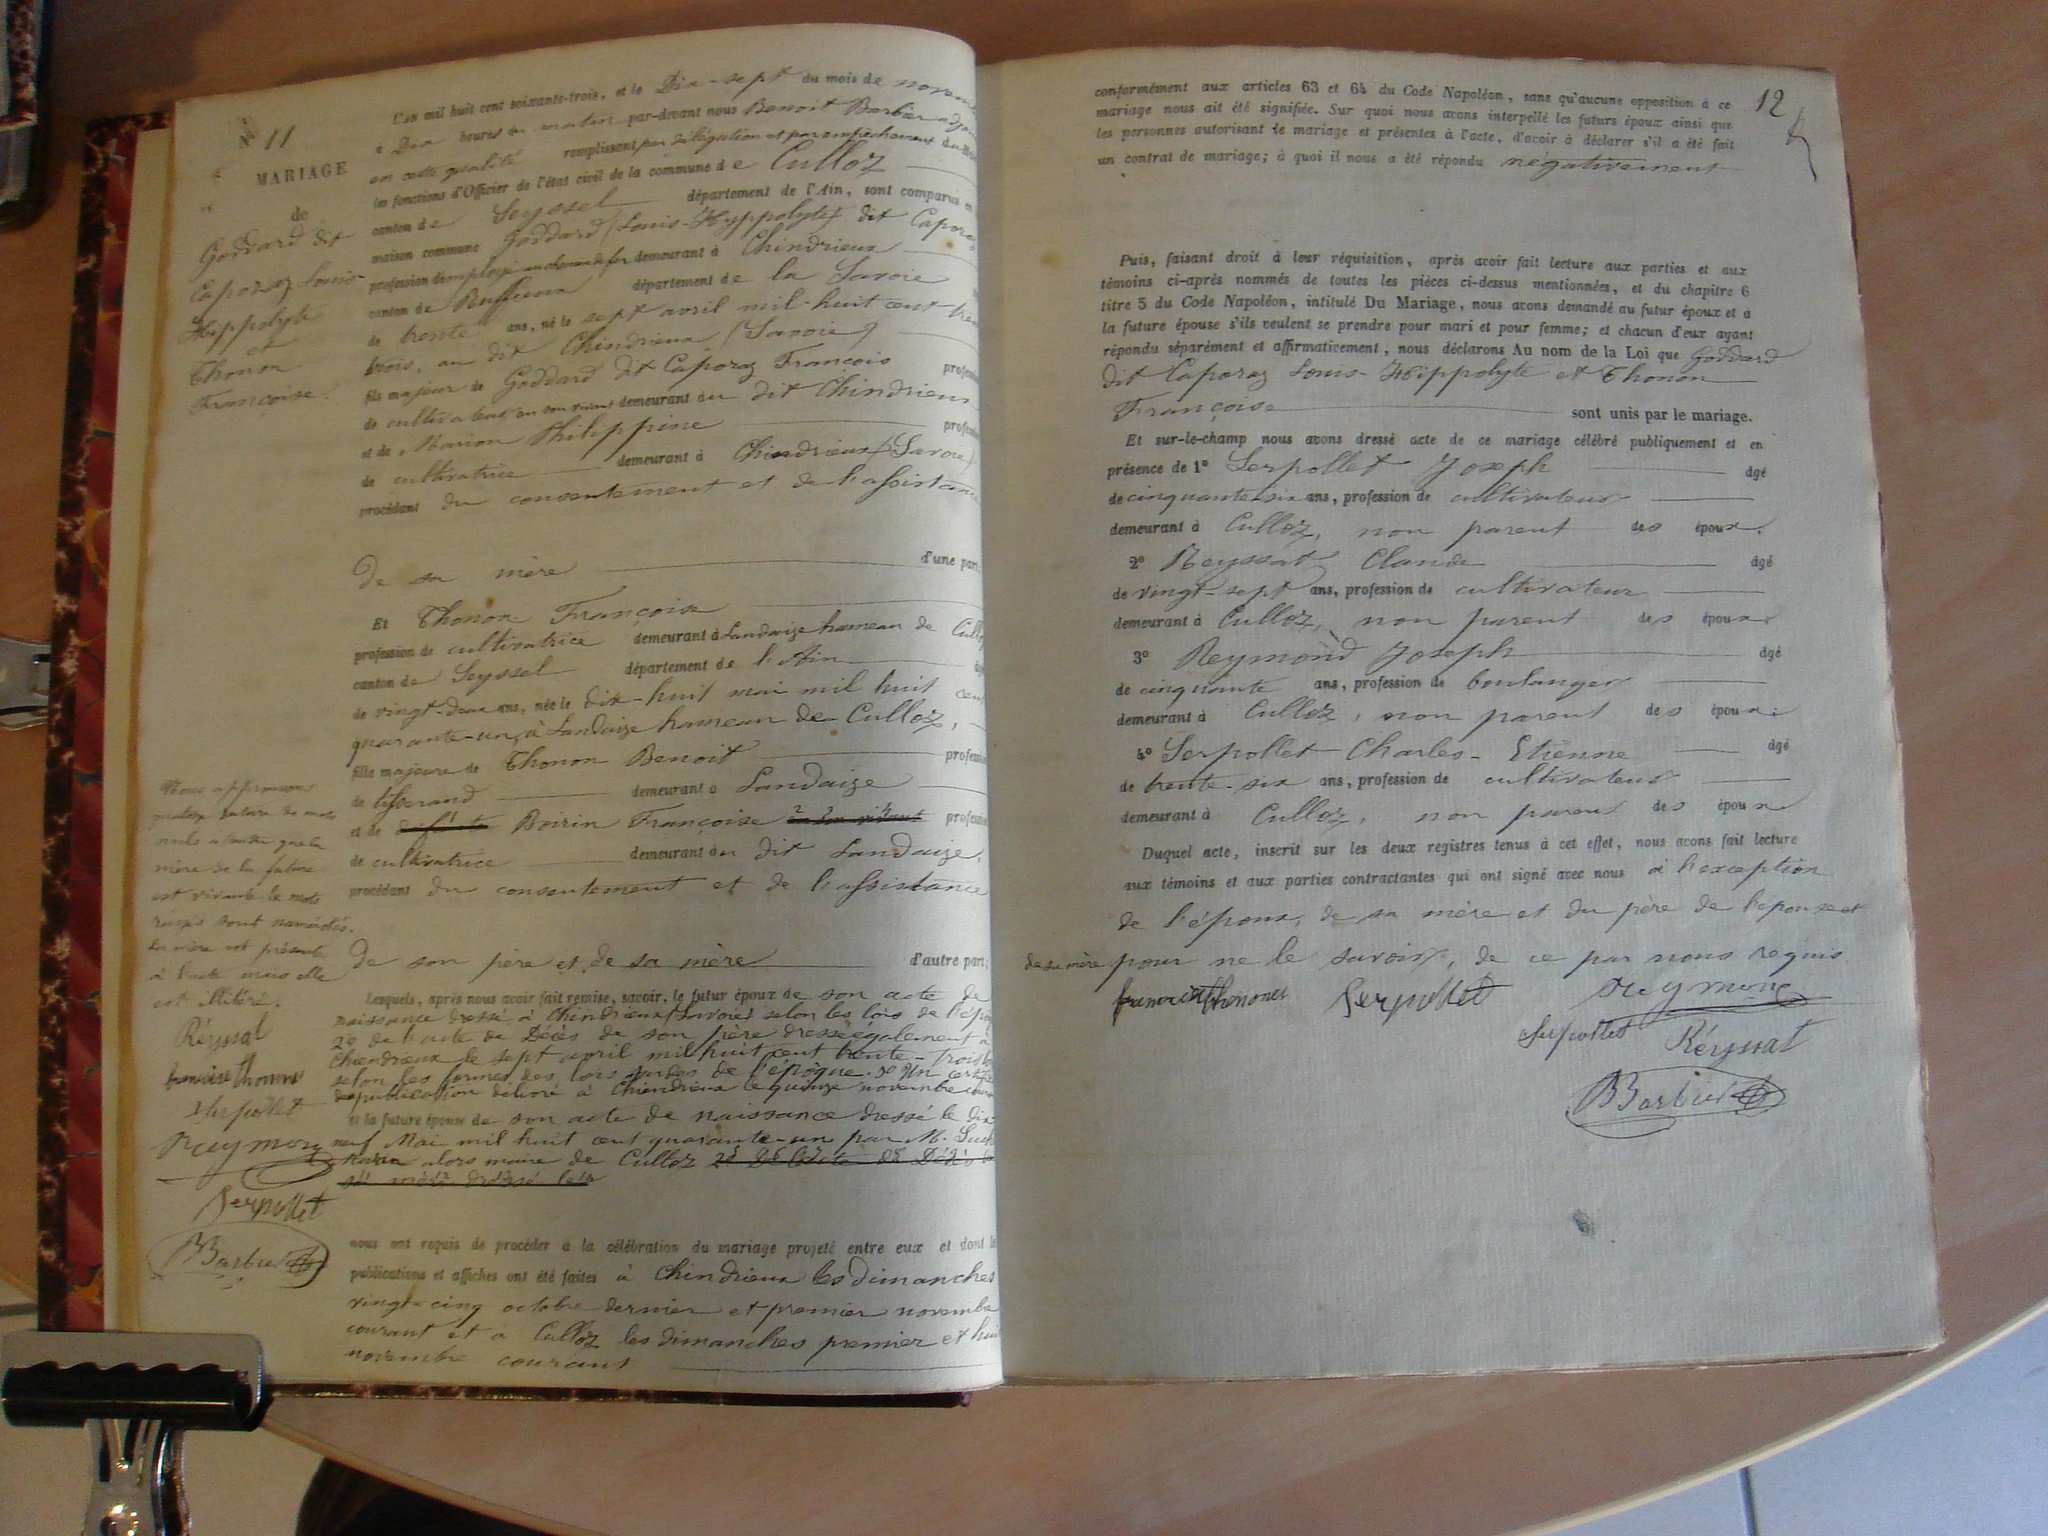 N° 11
MARIAGE
de
Goddard dit
Caporaz Louis
Hippolyte
et
Thonon
Françoise.
L'an mil huit cent soixante-trois, et le Dix-sept du mois de novem
à Dix heures du matin par-devant nous Benoit Barbier adjoi
en cette qualité remplissant par délégation et par empêchement du
les fonctions d'Officier de l'état civil de la commune de Culloz
canton de Seyssel département de l'Ain, sont comparus en
maison commune Goddard (Louis-Hyppolyte) dit Caporaz
profession d'employé au chemin de fer demeurant à Chindrieux
canton de Ruffieux département de la Savoie
de trente ans, né le sept avril mil-huit cent tren
trois, au dit Chindrieux (Savoie)
fils majeur de Goddard dit Caporaz François profession
de cultivateur en son vivant demeurant au dit Chindrieux
et de Marion Philippine profession
de cultivatrice demeurant à Chindrieux (Savoie)
procédant du consentement et de l'assistance
De sa mère d'une part,
Et Thonon Françoise
profession de cultivatrice demeurant à Landaize hameau de Cullo
canton de Seyssel département de l'Ain âgé
de vingt-deux ans, née le dix-huit mai mil huit cent
quarante-un, à Landaize hameau de Culloz,
fille majeure de Thonon Benoit profession
de tisserand demeurant à Landaize
et de défunte Boirin Françoise en son vivant profession
de cultivatrice demeurant au dit Landaize,
procédant du consentement et de l'assistance
De son père et de sa mère d'autre part;
Lesquels, après nous avoir fait remise, savoir, le futur époux de son acte de
naissance dressé à Chindrieux (Savoie) selon les lois de l'épo
2° de l'acte de Décès de son père dressé également à
Chindrieux le sept avril mil huit cent trente-trois
selon les formes des lois sardes de l'époque. 3° Un certif
de publication délivré à Chindrieux le quinze novembre cour
et la future épouse de son acte de naissance dressé le dix
neuf Mai mil huit cent quarante-un par M.
alors maire de Culloz 2° De l'acte de Décès de
sa mère dressé le
nous ont requis de procéder à la célébration du mariage projeté entre eux et dont le
publications et affiches ont été faites à Chindrieux les dimanches
vingt-cinq octobre dernier et premier novembre
courant et à Culloz les dimanches premier et huit
novembre courant
Nous approuvons
rature de mots
nuls attendu que la
mère de la future
est vivante les mots
rayés sont
La mère est présente
à l'acte mais elle
est illitéré.
Réyssat
françoise thonon
Serpollet
Reymon
Serpollet
BBarbier
12
conformément aux articles 63 et 64 du Code Napoléon, sans qu'aucune opposition à ce
mariage nous ait été signifiée. Sur quoi nous avons interpellé les futurs époux ainsi que
les personnes autorisant le mariage et présentes à l'acte, d'avoir à déclarer s'il a été fait
un contrat de mariage; à quoi il nous a été répondu négativement
Puis, faisant droit à leur réquisition, après avoir fait lecture aux parties et aux
témoins ci-après nommés de toutes les pièces ci-dessus mentionnées, et du chapitre 6
titre 5 du Code Napoléon, intitulé Du Mariage, nous avons demandé au futur époux et à
la future épouse s'ils veulent se prendre pour mari et pour femme; et chacun d'eux ayant
répondu séparément et affirmativement, nous déclarons Au nom de la Loi que Goddard
dit Caporaz Louis-Hippolyte et Thonon
Françoise sont unis par le mariage.
Et sur-le-champ nous avons dressé acte de ce mariage célébré publiquement et en
présence de 1° Serpollet Joseph âgé
de cinquante-six ans, profession de cultivateur
demeurant à Culloz, non parent des époux.
2° Reyssat Claude âgé
de vingt-sept ans, profession de cultivateur
demeurant à Culloz, non parent des époux
3° Reymond Joseph âgé
de cinquante ans, profession de boulanger
demeurant à Culloz, non parent des époux.
4° Serpollet Charles-Etienne âgé
de trente-six ans, profession de cultivateur
demeurant à Culloz, non parent des époux
Duquel acte, inscrit sur les deux registres tenus à cet effet, nous avons fait lecture
aux témoins et aux parties contractantes qui ont signé avec nous à l'exception
de l'époux, de sa mère et du père de l'épouse et
de sa mère pour ne le savoir, de ce par nous requis
francoise thonon Serpollet Reymon
Serpollet Réyssat
BBarbier